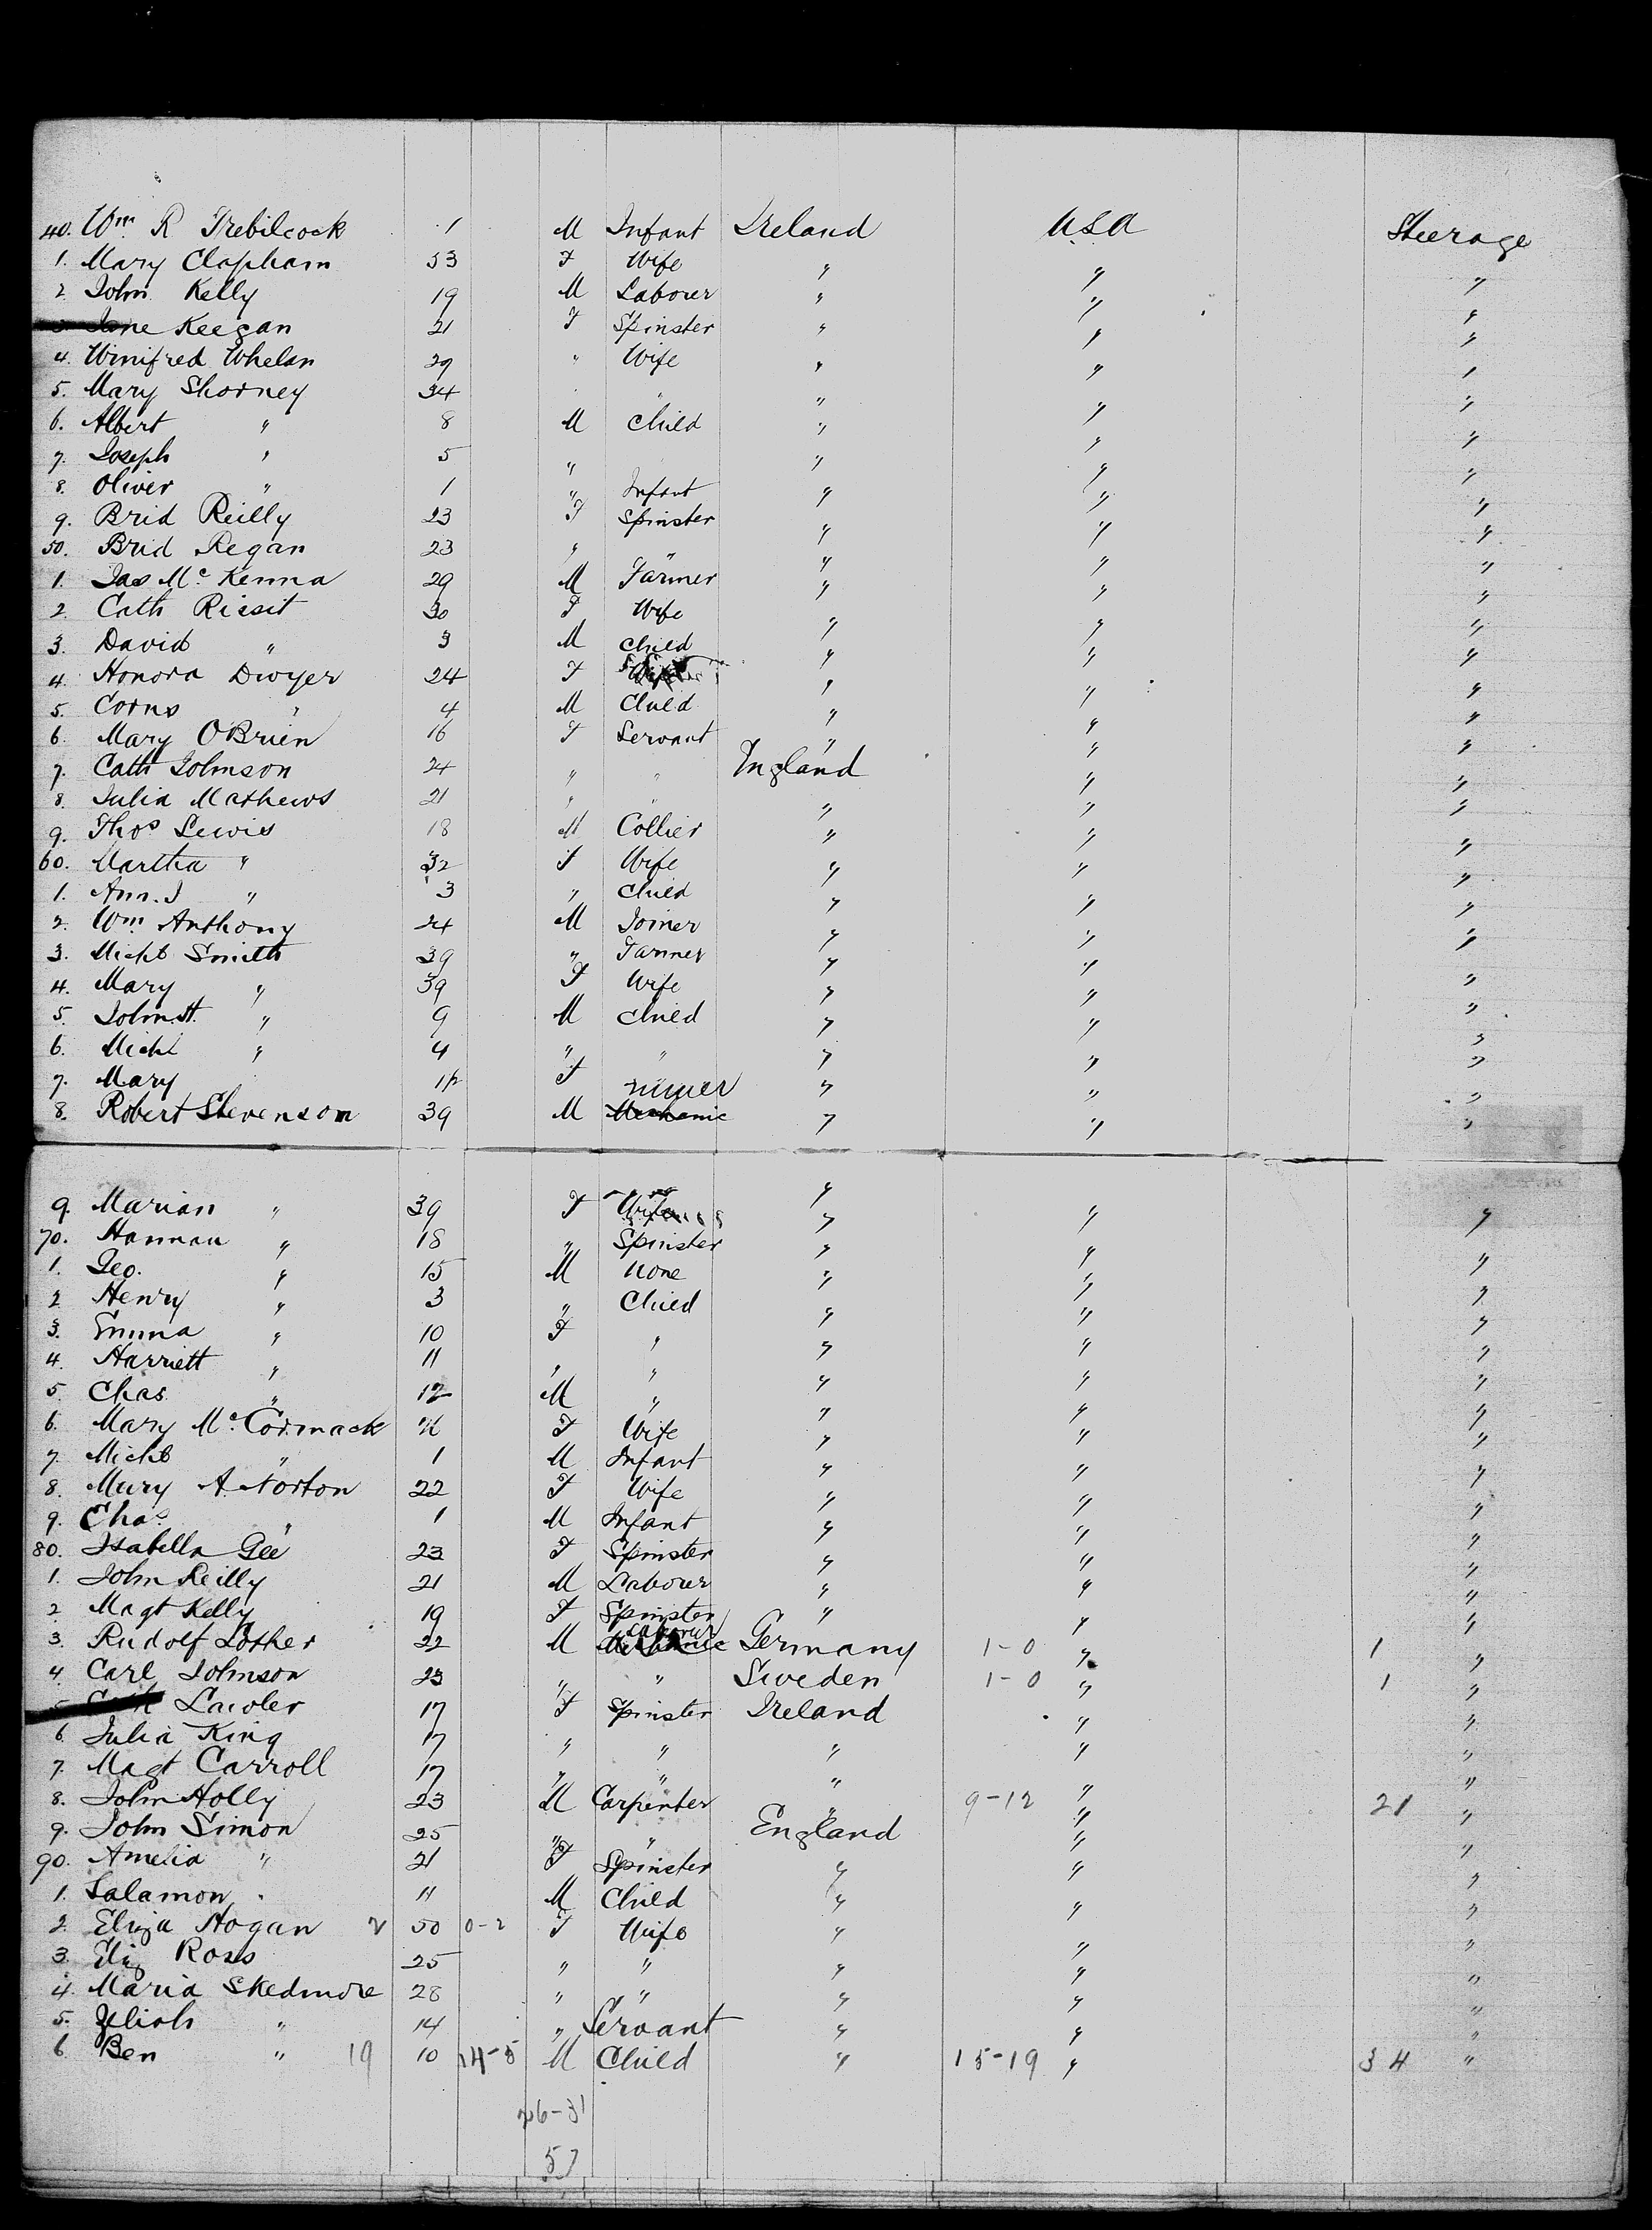 40. Wm. R Trebilcock 1 M Infant Ireland USA Steerage
1. Mary Clapham 53 F Wife " " "
2 John Kelly 19 M Labourer " " "
Jane Keegan 21 F Spinster " " "
4. Winifred Whelan 29 " Wife " " "
5. Mary Shorney 34 " " " " "
6. Albert " 8 M Child " " "
7. Joseph " 5 " " " "
8. Oliver " 1 " Infant " " "
9. Brid Reilly 23 F Spinster " " "
50. Brid Regan 23 " " " " "
1. Jas Mc Kenna 29 M Farmer " " "
2 Cath Rissit 30 F Wife " " "
3. David " 3 M Child " " "
4. Honora Dwyer 24 F " " "
5. Corns " 4 M Child " " "
6. Mary OBrien 16 F Servant " " "
7. Cath Johnson 24 " " England " "
8. Julia Mathews 21 " " " " "
9. Thos Lewis 18 M Collier " " "
60. Martha " 32 F Wife " " "
1. Ann. J " 3 " Child " " "
2. Wm Anthony 24 M Joiner " " "
3. Michl Smith 39 " Farmer " " "
4. Mary " 39 F Wife " " "
5. John. H. " 9 M Child " " "
6. Michl " 4 " " " " "
7. Mary F " " "
8. Robert Stevenson 39 M Mechanic " " "
9. Marian " 39 F Wife " " "
70. Hannah " 18 " Spinster " " "
1. Geo. " 15 M None " " "
2 Henry " 3 " Child " " "
3. Emma " 10 F " " " "
4. Harriett " 11 " " " " "
5. Chas " 12 M " " " "
6. Mary Mc. Cormack F Wife " " "
7. Michl " 1 M Infant " " "
8. Mary A. Norton 22 F Wife " " "
9. Chas. " 1 M Infant " " "
80. Isabella Gee 23 F Spinster " " "
1. John Reilly 21 M Labourer " " "
2 Magt Kelly 19 F Spinster " " "
3. Rudolf Lother 22 M Labourer Germany 1-0 " 1 "
4. Carl Johnson 23 " " Sweden 1-0 " 1 "
Lawler 17 F Spinster Ireland " "
6. Julia King 17 " " " " "
7. Magt Carroll 17 " " " " "
8. John Holly 23 M Carpenter " 9-12 " 21 "
9. John Simon 25 " " England " "
90. Amelia " 21 F Spinster " " "
1. Salamon " 11 M Child " " "
2. Eliza Hogan 2 50 0-2 F Wife " " "
3. Eliz Ross 25 " " " " "
4. Maria Skedmore 28 " " " " "
5. Zeliah " 14 " Servant " " "
6. Ben " 19 10 14-5 M Child " 15-19 " 34 "
26-31
57